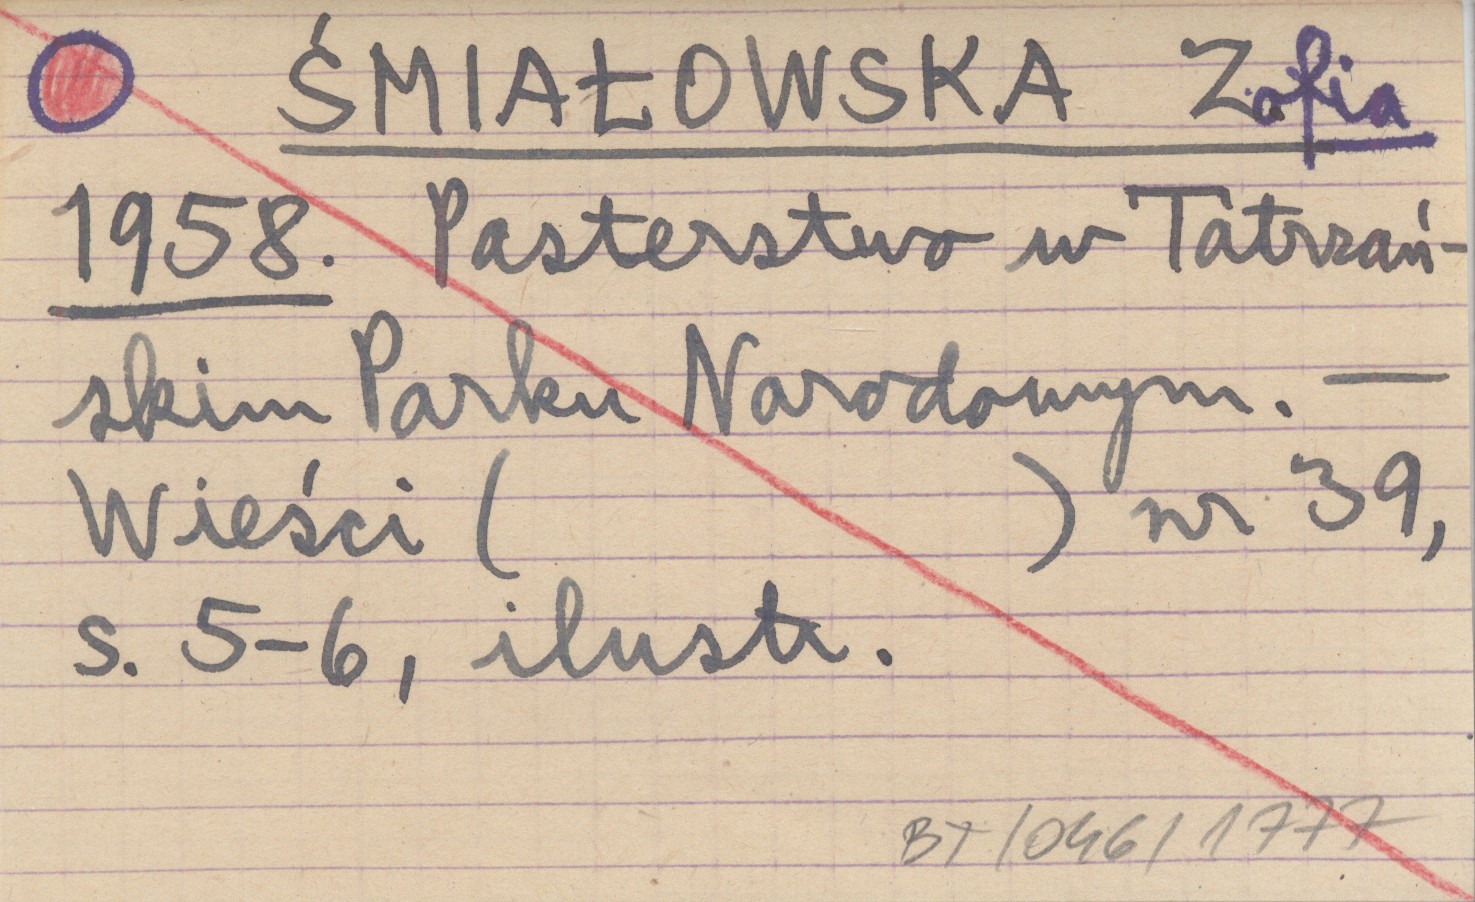 ŚMIAŁOWSKA Zofia
1958. Pasterstwo w Tatrzań-
skim Parku Narodowym. —
Wieści ( ) nr 39,
s. 5-6, ilustr.
BT/046/1777